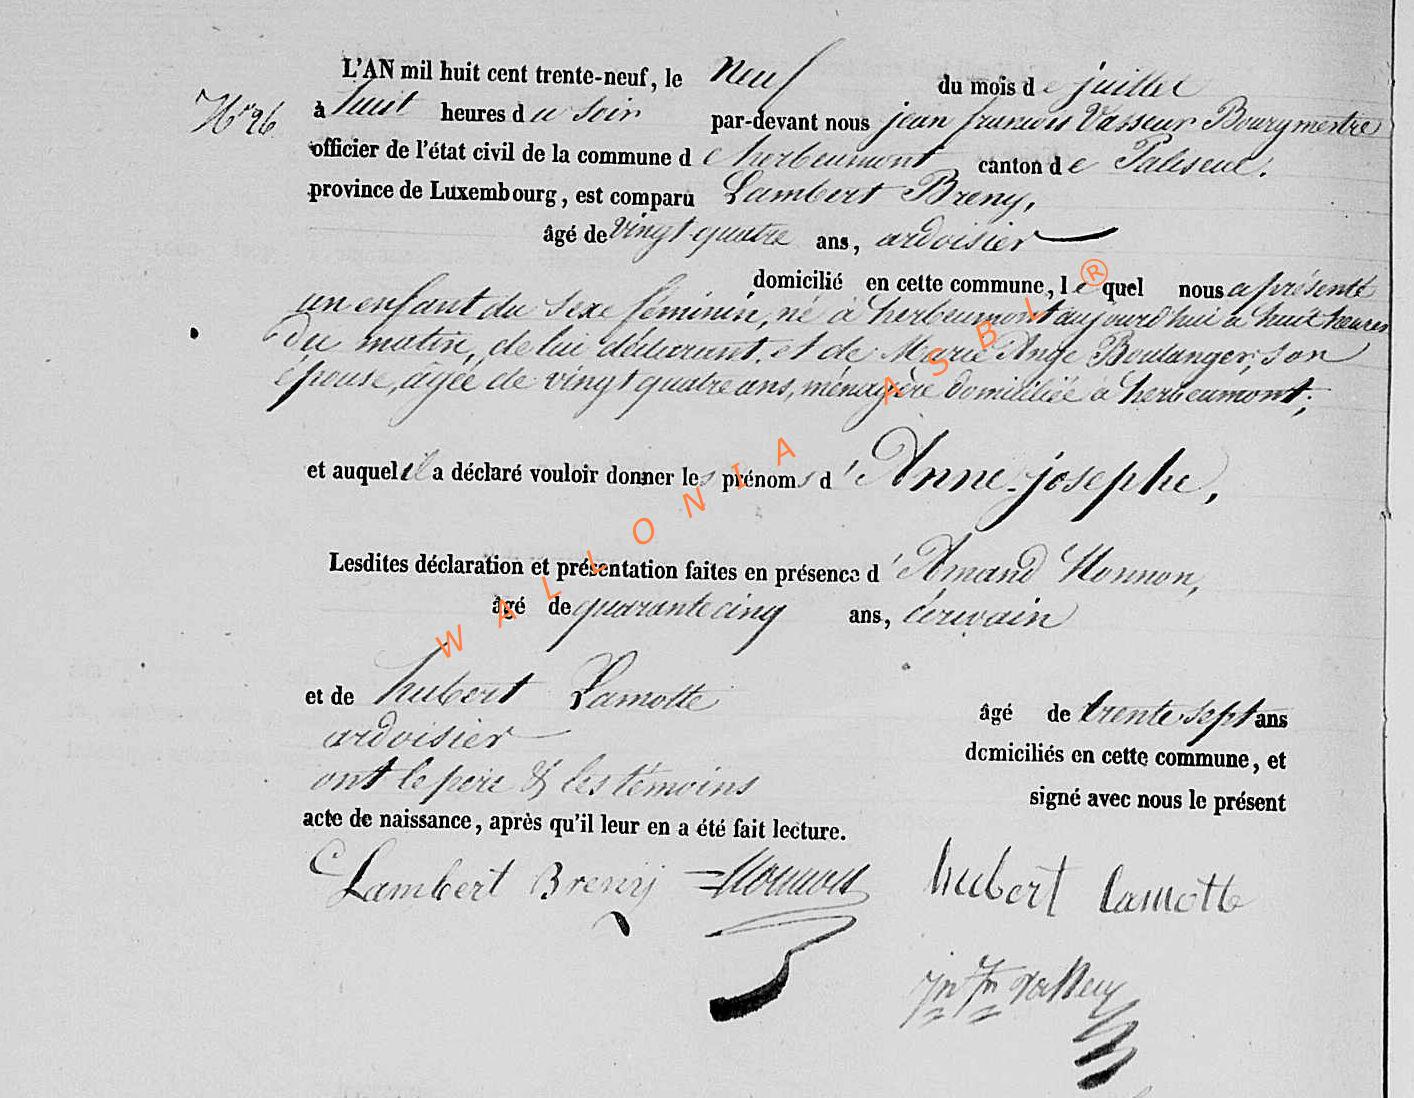 L'AN mil huit cent trente-neuf, le neuf du mois de juillet
N° 26
à huit heures du soir par-devant nous jean francois Vasseur Bourgmestre
officier de l'état civil de la commune de herbeumont canton de Paliseul.
province de Luxembourg, est comparu Lambert Breny,
âgé de vingt quatre ans, ardoisier
domicilié en cette commune, lequel nous a présenté
un enfant du sexe féminin, né à herbeumont aujourd'hui a huit heures
du matin, de lui déclarant, et de Marie Ange Boulanger, son
épouse, agée de vingt quatre ans, ménagère domiciliée a herbeumont;
et auquel il a déclaré vouloir donner les prénoms d'Anne-josephe,
Lesdites déclaration et présentation faites en présence d'Amand Monnon,
âgé de quarante cinq ans, écrivain
et de hubert Lamotte âgé de trente sept ans
ardoisier domiciliés en cette commune, et
ont le père & les témoins signé avec nous le présent
acte de naissance, après qu'il leur en a été fait lecture.
Lambert Breny Monnon hubert Lamotte
jn fn Vasseur
WALLONIA ASBL ®